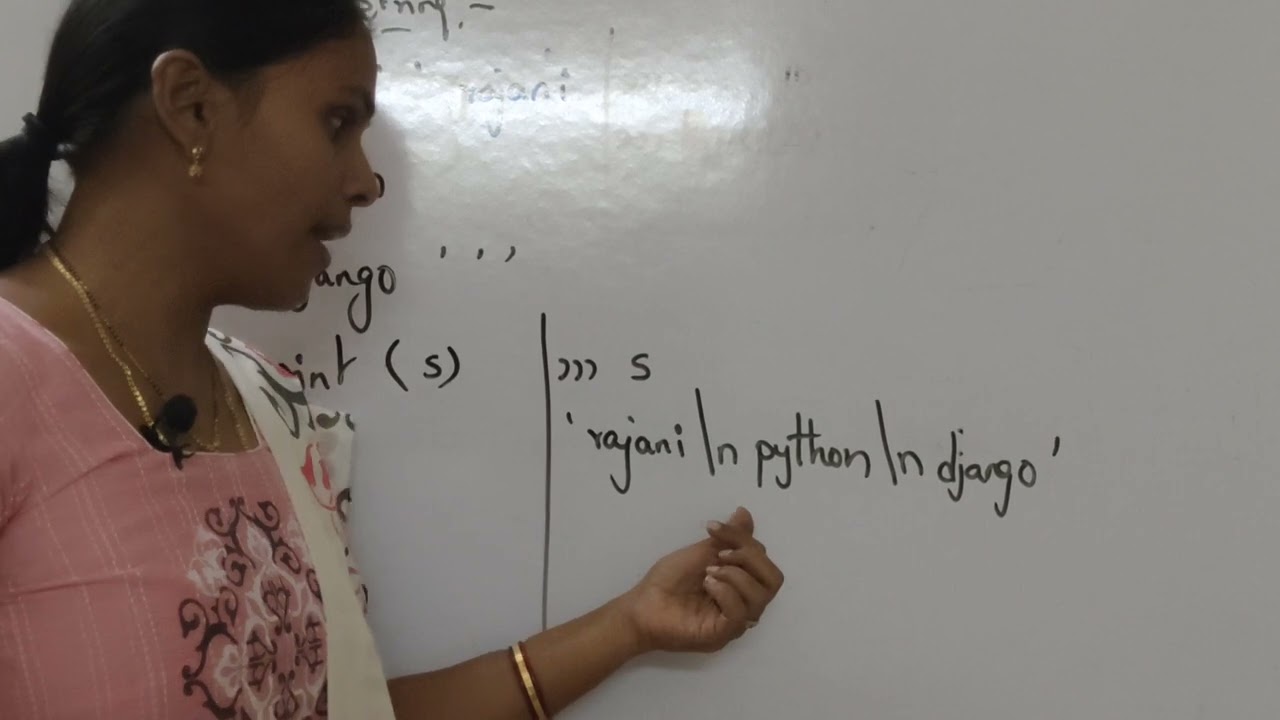 rajani
ango ' ' '
int (s)
>>> s
'rajani \n python \n django'